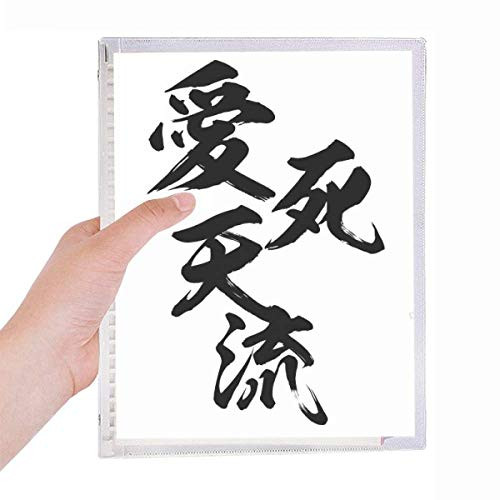 愛
死
天
流